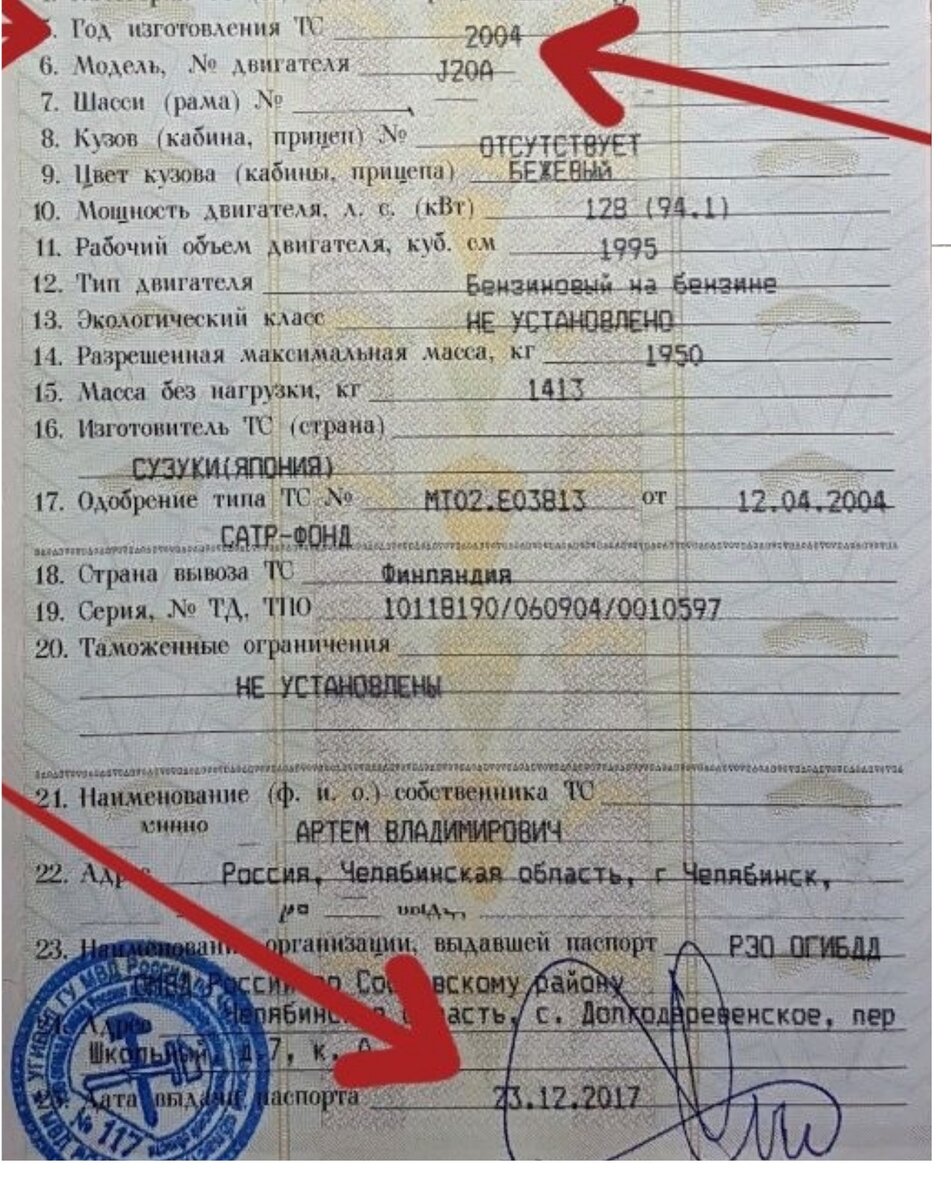 5. Год изготовления ТС 2004
6. Модель, № двигателя J20A
7. Шасси (рама) №
8. Кузов (кабина, прицеп) № ОТСУТСТВУЕТ
9. Цвет кузова (кабины, прицепа) БЕЖЕВЫЙ
10. Мощность двигателя, л. с. (кВт) 128 (94.1)
11. Рабочий объем двигателя, куб. см 1995
12. Тип двигателя Бензиновый на бензине
13. Экологический класс НЕ УСТАНОВЛЕНО
14. Разрешенная максимальная масса, кг 1950
15. Масса без нагрузки, кг 1413
16. Изготовитель ТС (страна)
СУЗУКИ(ЯПОНИЯ)
17. Одобрение типа ТС № МТ02.Е03813 от 12.04.2004
САТР-ФОНД
18. Страна вывоза ТС Финляндия
19. Серия, № ТД, ТПО 10118190/060904/0010597
20. Таможенные ограничения
НЕ УСТАНОВЛЕНЫ
21. Наименование (ф. и. о.) собственника ТС
АРТЕМ ВЛАДИМИРОВИЧ
22. Адрес Россия, Челябинская область, г Челябинск,
23. Наименование организации, выдавшей паспорт РЭО ОГИБДД
ОМВД России по Сосновскому району
24. Адрес Челябинская область, с. Долгодеревенское, пер
Школьный, д.7, к. А
25. Дата выдачи паспорта 23.12.2017
№ 117